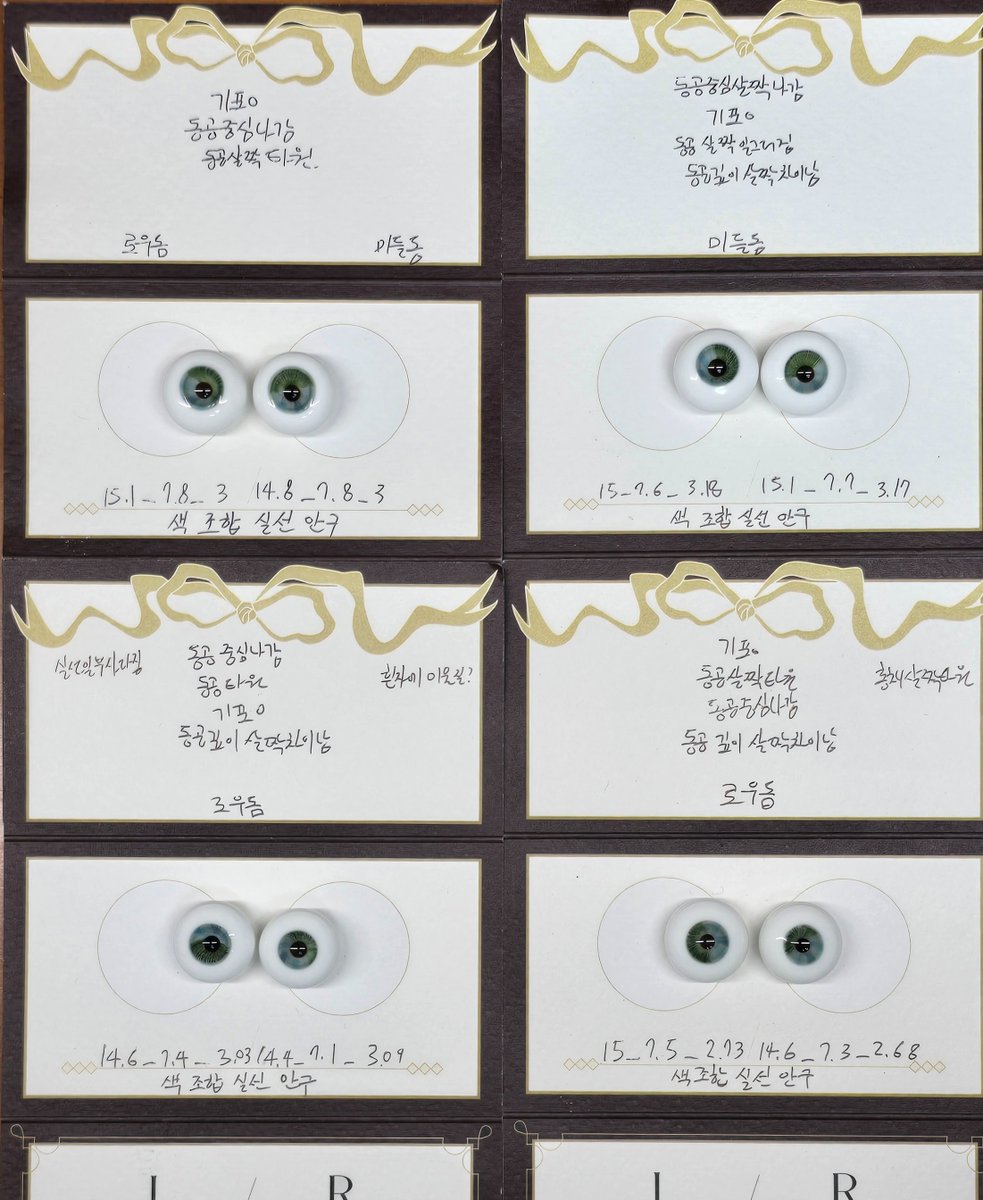 기포o
동공중심나감
동공살짝타원.
로우돔
미들돔
15.1_7.8_3 / 14.8_7.8_3
색 조합 실선 안구
동공중심살짝나감
기포o
동공 살짝 일그러짐
동공깊이 살짝차이남
미들돔
15_7.6_3.18 / 15.1_7.7_3.17
색 조합 실선 안구
실선일부사라짐
동공 중심나감
동공타원
기포o
동공깊이 살짝차이남
흰자에 이물질?
로우돔
14.6_7.4_3.03/14.4_7.1_3.09
색 조합 실선 안구
기포o
동공살짝타원
동공중심나감
동공 깊이 살짝차이남
홍채살짝타원
로우돔
15_7.5_2.73 14.6_7.3_2.68
색조합 실선 안구
L / R
L / R